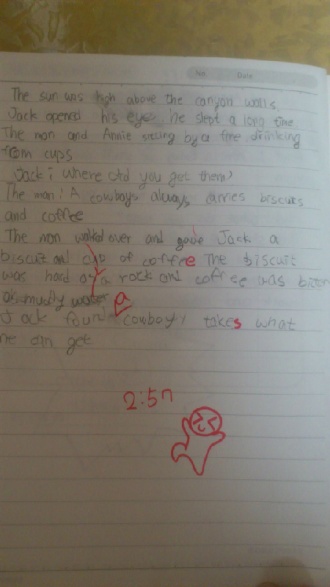 No. Date
The sun was high above the canyon walls
Jack opened his eyes, he slept a long time
The man and Annie by a fire drinking
from cups
Jack: Where did you get them?
The man: A cowboy always carries biscuits
and coffee
The man walked over and gave Jack a
biscuit and cup of coffee The biscuit
was hard as a rock and coffee was
water a
Jack found cowboy takes what
he can get
2:57